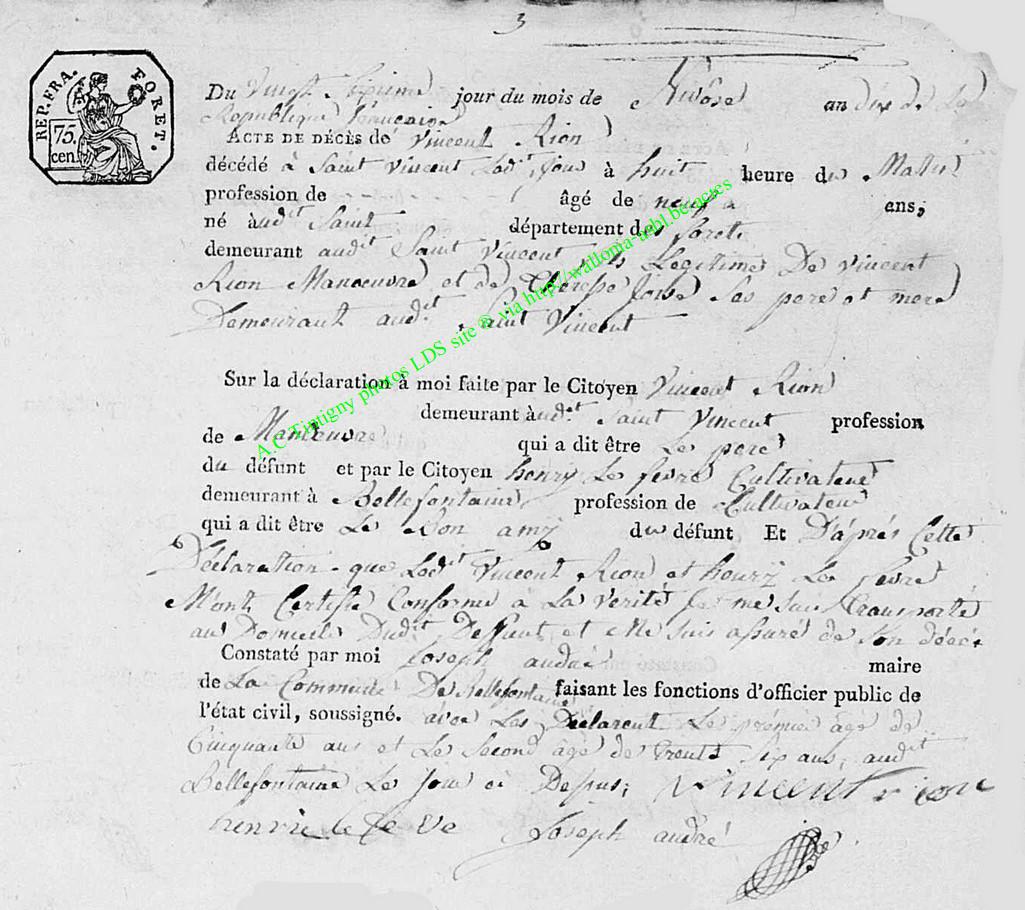 3
REP. FRA. FORET.
75. cen.
Du vingt sixieme jour du mois de Nivôse an dix de La
Republique francaise
ACTE DE DÉCÈS de Vincent Rion
décédé à Saint Vincent Led.t jour à huit heure du Matin
profession de âgé de neuf ans;
né àud.it Saint département des forets
demeurant aud.it Saint Vincent fils Legitime De vincent
Rion Manoeuvre et de Therese Ses pere et mere
Demeurant aud.it Saint Vincent
Sur la déclaration à moi faite par le Citoyen Vincent Rion
demeurant àud.it Saint Vincent profession
de Manoeuvre qui a dit être Le pere
du défunt et par le Citoyen henry Le fevre Cultivateur
demeurant à Bellefontaine profession de Cultivateur
qui a dit être Le Bon amy du défunt, Et D'áprés Cette
Déclaration que Led.t Vincent Rion et henry Le fevre
M'ont Certifié Conforme à La verité Je me suis Transporté
au Domicile Dud.it Deffunt et Me suis assuré de son décés
Constaté par moi Joseph andré maire
de La Commune De Bellefontaine faisant les fonctions d'officier public de
l'état civil, soussigné. avec Les Declarent Le premier âge de
Cinquante ans et Le Second âgé de Trente Six ans, audit
Bellefontaine Le Jour Depus; Vincent rion
henrie le fe ve Joseph andré
A.C Tintigny photos LDS site ® via http://wallonia-